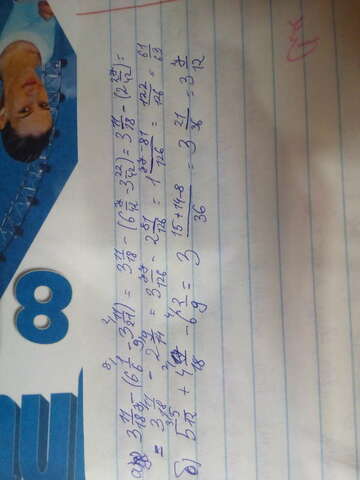 а) 3 11/18 - (6 1/6 - 3 11/21) = 3 11/18 - (6 7/42 - 3 22/42) = 3 11/18 - (2 27/42) =
= 3 11/18 - 2 9/14 = 3 77/126 - 2 81/126 = 1 77-81/126 = 122/126 = 61/63
б) 5 5/12 + 4 7/18 - 6 2/9 = 3 15+14-8/36 = 3 21/36 = 3 7/12
8